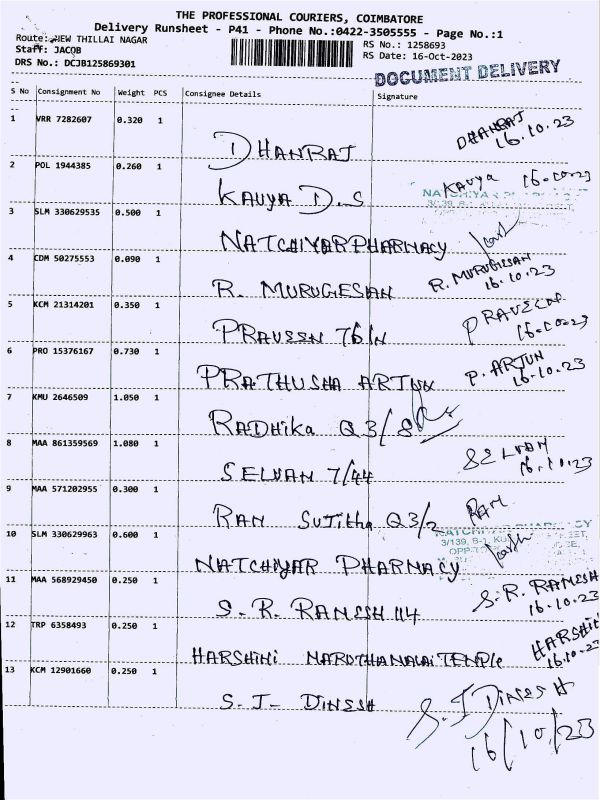 THE PROFESSIONAL COURIERS, COIMBATORE
Delivery Runsheet - P41 - Phone No.:0422-3505555 - Page No.:1
Route: NEW THILLAI NAGAR
Staff: JACOB
DRS No.: DCJB125869301
RS No.: 1258693
RS Date: 16-Oct-2023
DOCUMENT DELIVERY
S No Consignment No Weight PCS Consignee Details Signature
1 VRR 7282607 0.320 1
DHANRAJ
DHANRAJ
16.10.23
2 POL 1944385 0.260 1
KAVYA D.S
Kavya 16-10-23
3 SLM 330629535 0.500 1
NATCHIYAR PHARMACY
4 CDM 50275553 0.090 1
R. MURUGESAN
R. MURUGESAN
16.10.23
5 KCM 21314201 0.350 1
PRAVEEN 76/N
16-10-23
6 PRO 15376167 0.730 1
PRATHUSHA ARJUN
P. ARJUN
16.10.23
7 KMU 2646509 1.050 1
RADHIKA Q3/8
8 MAA 861359569 1.080 1
SELVAN 7/44
SELVAN
16.10.23
9 MAA 571202955 0.300 1
RAM SUJITHA Q3/2
RAM
10 SLM 330629963 0.600 1
NATCHIYAR PHARMACY
3/139, B-1,
11 MAA 568929450 0.250 1
S.R. RAMESH 114
S.R. RAMESH
16.10.23
12 TRP 6358493 0.250 1
HARSHINI MARUTHAMALAI TEMPLE
HARSHINI
16.10.23
13 KCM 12901660 0.250 1
S.J- DINESH
S.J DINESH
16/10/23